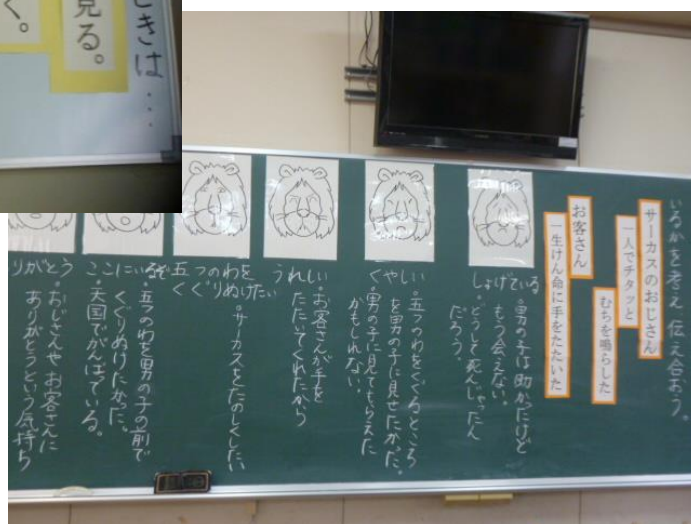 きは…
見る。
く。
いるかを考え伝え合おう。
サーカスのおじさん
一人でチタッと
むちを鳴らした
お客さん
一生けん命に手をたたいた
しょげている
・男の子は助かったけど
もう会えない。
・どうして死んじゃったん
だろう。
くやしい
・五つのわをくぐるところ
を男の子に見せたかった。
・男の子に見てもらえた
かもしれない。
うれしい
・お客さんが手を
たたいてくれたから
五つのわを
くぐりぬけたい
・サーカスをたのしくしたい
ここにいるぞ
・五つのわを男の子の前で
くぐりぬけたかった。
・天国でがんばっている。
りがとう
・おじさんや、お客さんに
ありがとうという気持ち